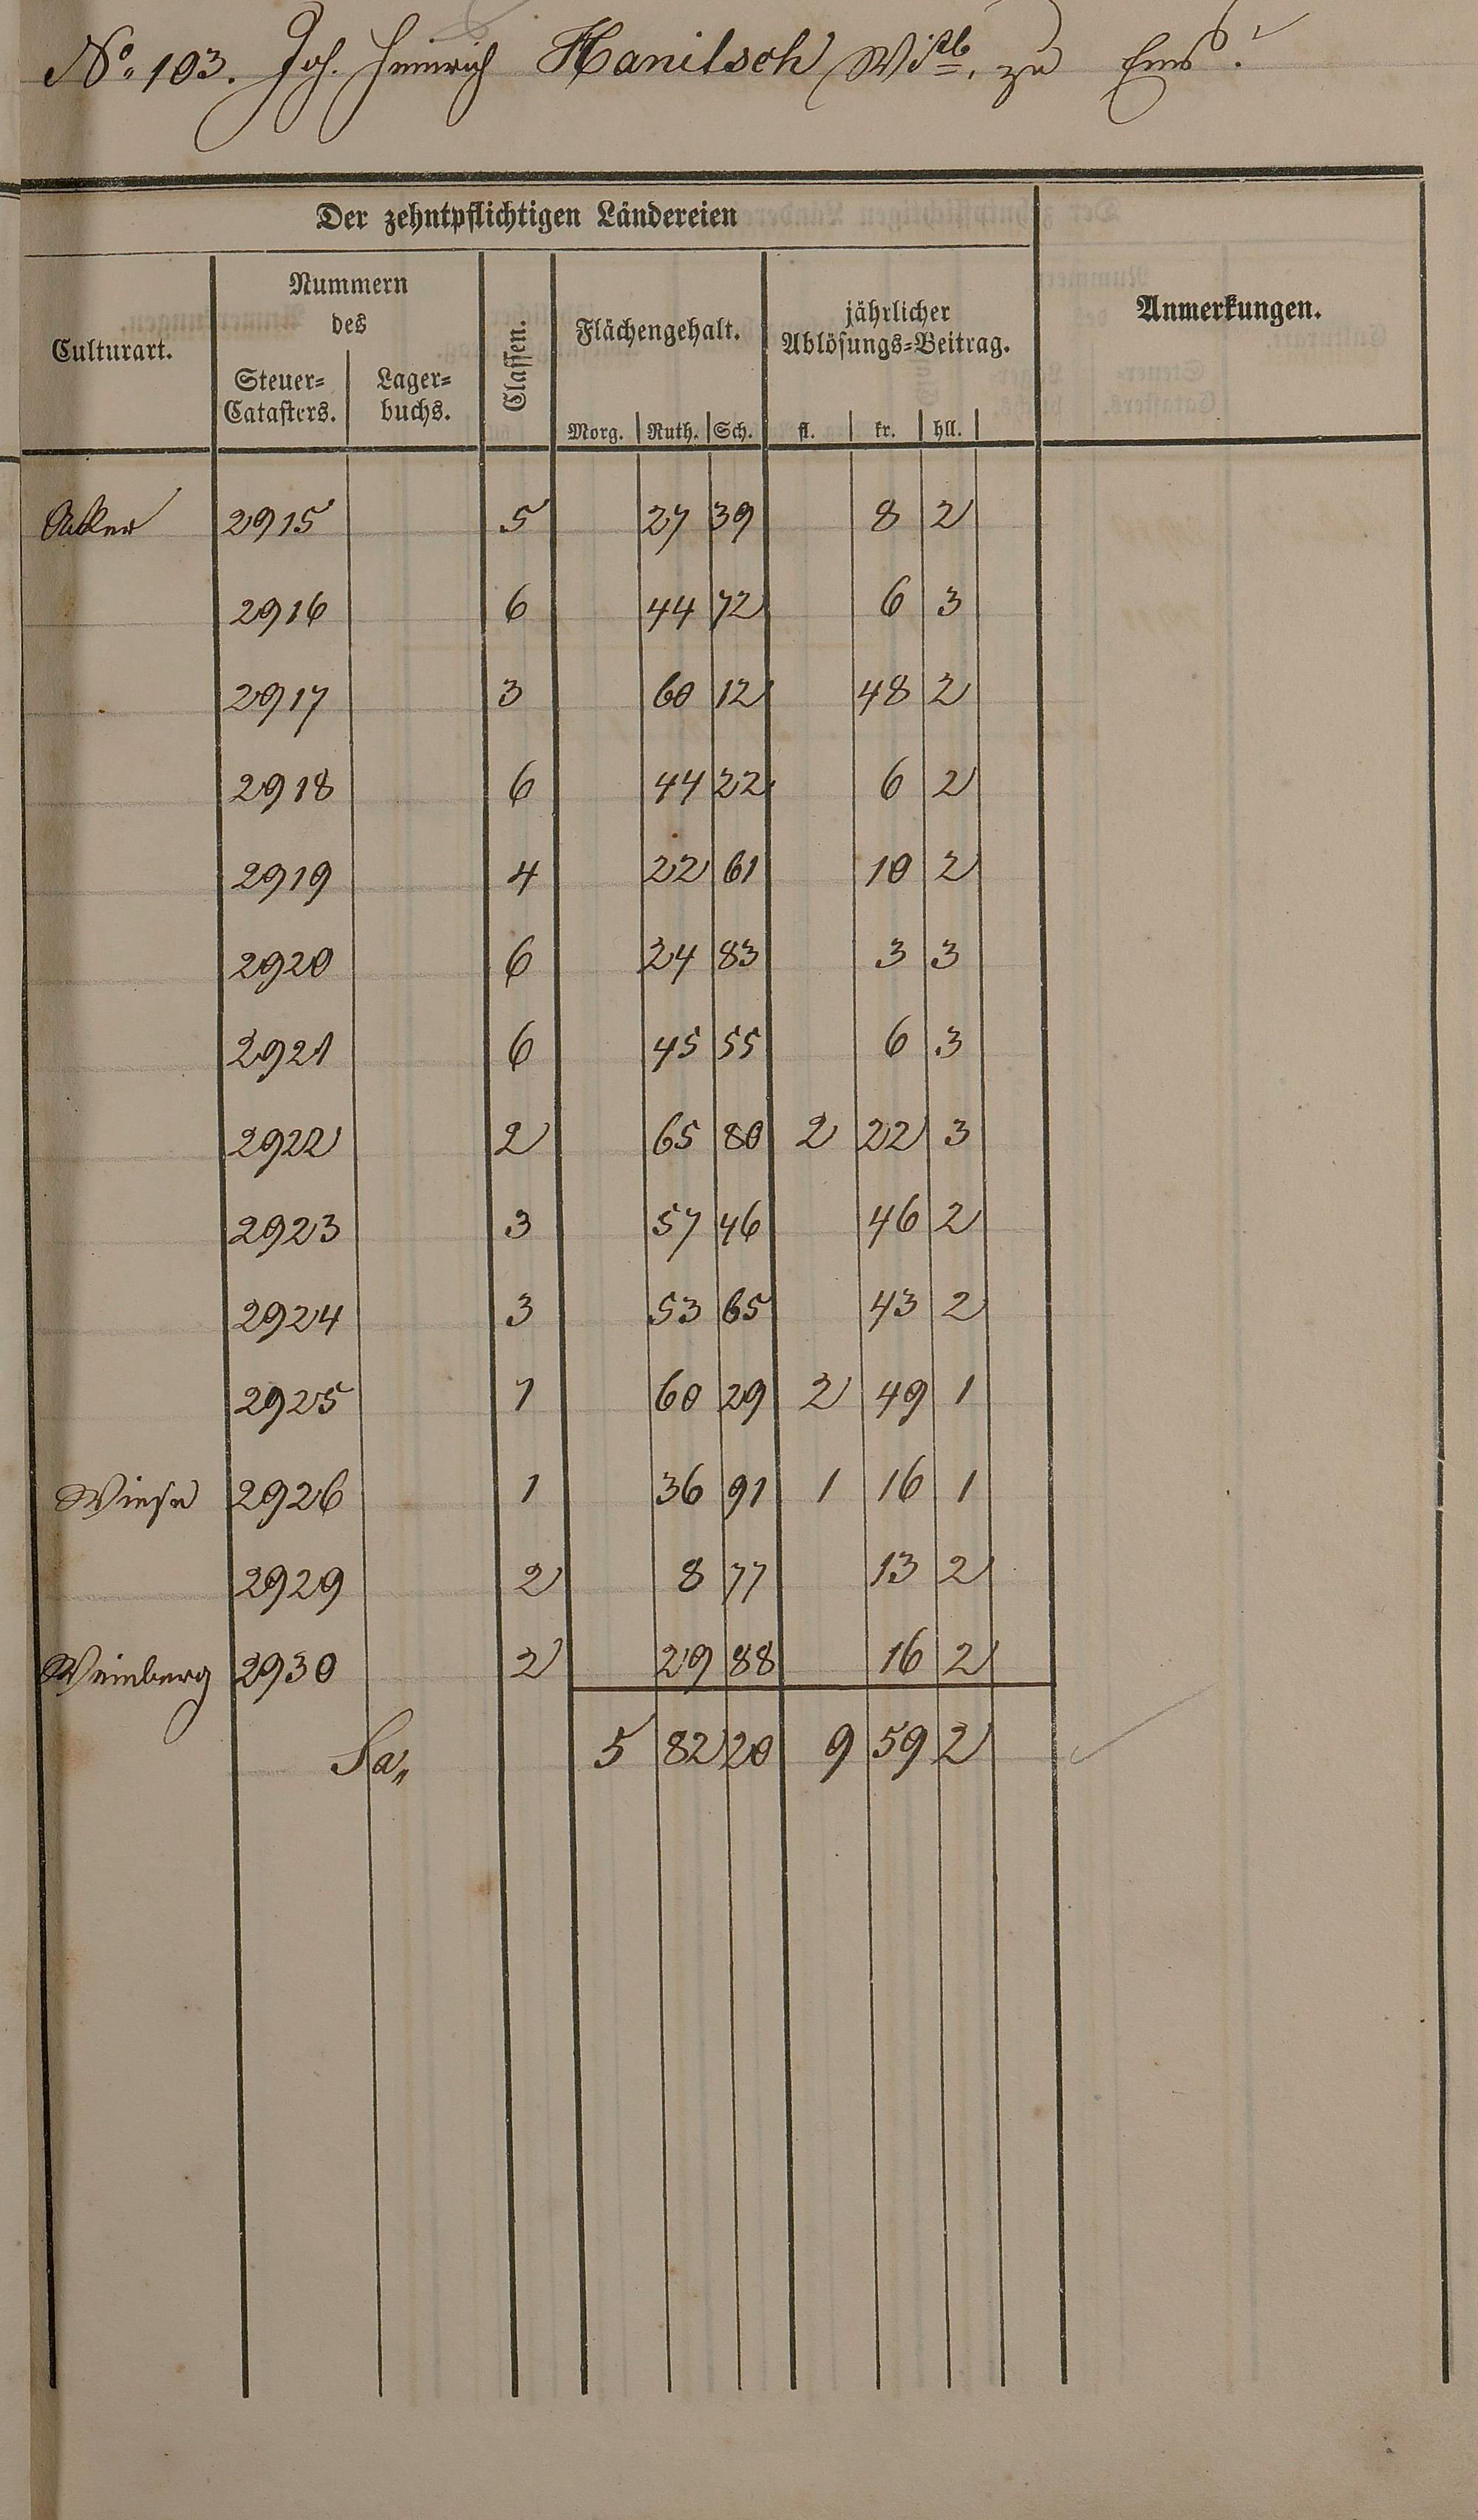 No. 103. Joh. Heinrich Hanitsch Wtb. zu Ems.
Der zehntpflichtigen Ländereien
Culturart.
Nummern
des
Steuer-
Catasters.
Lager-
buchs.
Classen.
Flächengehalt.
Morg. Ruth. Sch.
jährlicher
Ablösungs-Beitrag.
fl. kr. hll.
Anmerkungen.
Acker 2915 5 27 39 8 2
2916 6 44 72 6 3
2917 3 60 12 48 2
2918 6 44 22 6 2
2919 4 22 61 10 2
2920 6 24 83 3 3
2921 6 45 55 6 3
2922 2 65 80 2 22 3
2923 3 57 46 46 2
2924 3 53 65 43 2
2925 1 60 29 2 49 1
Wiese 2926 1 36 91 1 16 1
2929 2 8 77 13 2
Weinberg 2930 2 29 88 16 2
Sa. 5 82 20 9 59 2